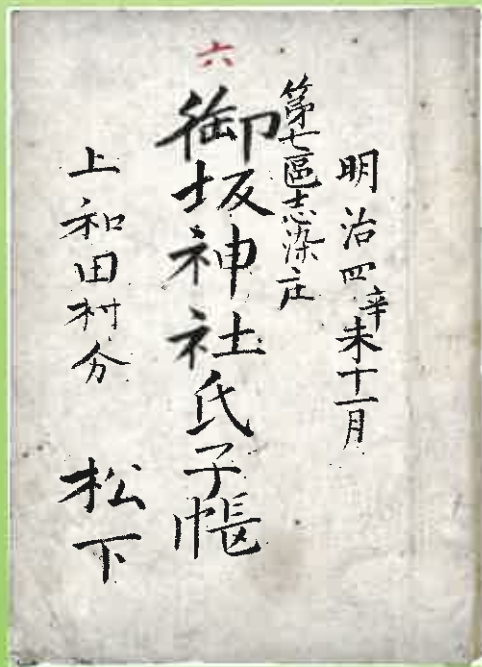 明治四辛未十一月
第七區志染庄
六
御坂神社氏子帳
上和田村分 松下